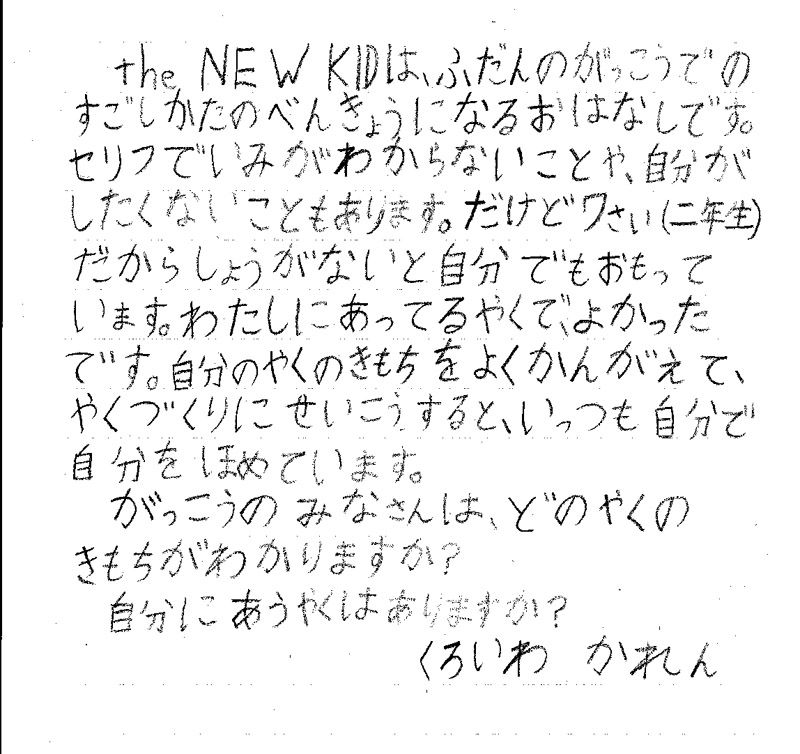 the NEW KIDは、ふだんのがっこうでの
すごしかたのべんきょうになるおはなしです。
セリフでいみがわからないことや、自分が
したくないこともあります。だけど7さい(二年生)
だからしょうがないと自分でもおもって
います。わたしにあってるやくで、よかった
です。自分のやくのきもちをよくかんがえて、
やくづくりにせいこうすると、いっつも自分で
自分をほめています。
がっこうのみなさんは、どのやくの
きもちがわかりますか?
自分にあうやくはありますか?
くろいわ かれん